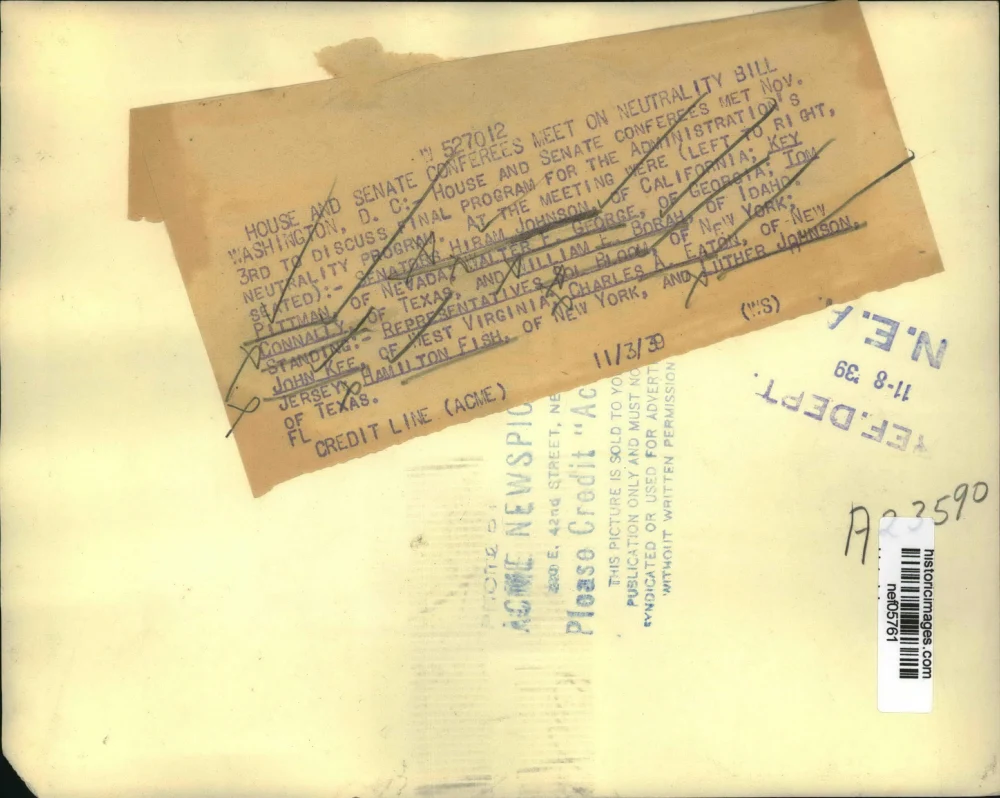 W 527012
HOUSE AND SENATE CONFEREES MEET ON NEUTRALITY BILL
WASHINGTON, D. C:- HOUSE AND SENATE CONFEREES MET NOV.
3RD TO DISCUSS FINAL PROGRAM FOR THE ADMINISTRATION'S
NEUTRALITY PROGRAM. AT THE MEETING WERE (LEFT TO RIGHT,
SEATED):- SENATORS HIRAM JOHNSON, OF CALIFORNIA; KEY
PITTMAN, OF NEVADA; WALTER F. GEORGE, OF GEORGIA; TOM
CONNALLY, OF TEXAS, AND WILLIAM E. BORAH, OF IDAHO.
STANDING:- REPRESENTATIVES SOL BLOOM, OF NEW YORK;
JOHN KEE, OF WEST VIRGINIA; CHARLES A. EATON, OF NEW
JERSEY; HAMILTON FISH, OF NEW YORK, AND LUTHER JOHNSON,
OF TEXAS.
FL
CREDIT LINE (ACME) 11/3/39 (WS)
N.E.A.
11-8-'39
REF. DEPT.
ACME NEWSPIC
220 E. 42nd STREET, NE
Please Credit "Ac
THIS PICTURE IS SOLD TO YO
PUBLICATION ONLY AND MUST NO
SYNDICATED OR USED FOR ADVERT
WITHOUT WRITTEN PERMISSION
A23590
historicimages.com
nef05761